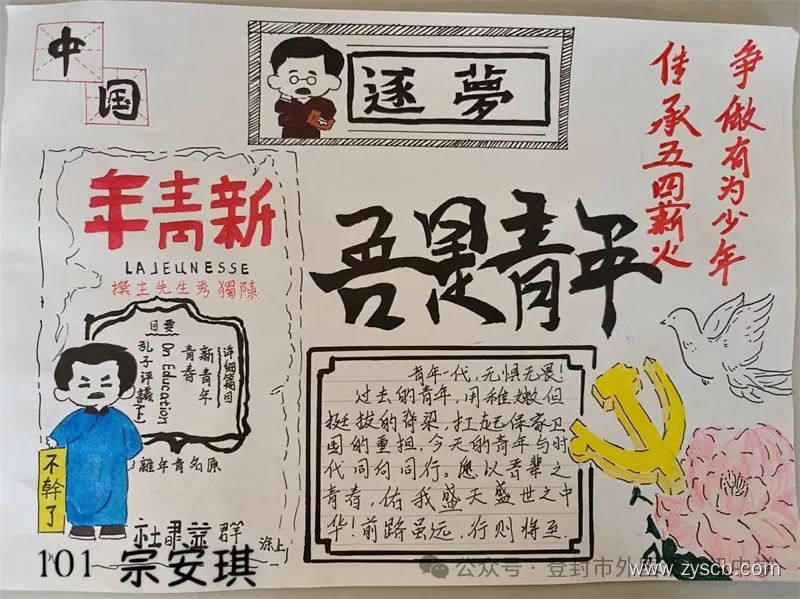 中
国
逐夢
争做有为少年
传承五四薪火
年青新
LAJEUNESSE
撰主生先秀獨陳
目要
详细篇目
新青年
青春
On Education
孔子评議(下)
雜年青名原
不幹了
社書益群
上
吾是青年
青年一代,无惧无畏!
过去的青年,用稚嫩但
挺拔的脊梁,扛起保家卫
国的重担。今天的青年与时
代同向同行,愿以吾辈之
青春,佑我盛天盛世之中
华!前路虽远,行则将至.
101 宗安琪
公众号·登封市外国
www.zyscb.com